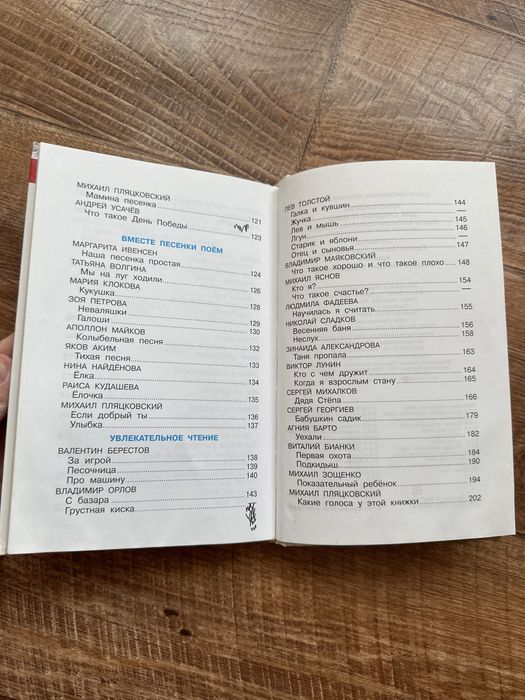 МИХАИЛ ПЛЯЦКОВСКИЙ
Мамина песенка 121
АНДРЕЙ УСАЧЁВ
Что такое День Победы 123
ВМЕСТЕ ПЕСЕНКИ ПОЁМ
МАРГАРИТА ИВЕНСЕН
Наша песенка простая 124
ТАТЬЯНА ВОЛГИНА
Мы на луг ходили 126
МАРИЯ КЛОКОВА
Кукушка 128
ЗОЯ ПЕТРОВА
Неваляшки 129
Галоши 130
АПОЛЛОН МАЙКОВ
Колыбельная песня 132
ЯКОВ АКИМ
Тихая песня 133
НИНА НАЙДЁНОВА
Ёлка 134
РАИСА КУДАШЕВА
Ёлочка 135
МИХАИЛ ПЛЯЦКОВСКИЙ
Если добрый ты 136
Улыбка 137
УВЛЕКАТЕЛЬНОЕ ЧТЕНИЕ
ВАЛЕНТИН БЕРЕСТОВ
За игрой 138
Песочница 139
Про машину 140
ВЛАДИМИР ОРЛОВ
С базара 143
Грустная киска
ЛЕВ ТОЛСТОЙ
Галка и кувшин 144
Жучка —
Лев и мышь 145
Лгун 146
Старик и яблони —
Отец и сыновья 147
ВЛАДИМИР МАЯКОВСКИЙ
Что такое хорошо и что такое плохо 148
МИХАИЛ ЯСНОВ
Кто я? 154
Что такое счастье? —
ЛЮДМИЛА ФАДЕЕВА
Научилась я считать 155
НИКОЛАЙ СЛАДКОВ
Весенняя баня 156
Неслух 158
ЗИНАИДА АЛЕКСАНДРОВА
Таня пропала 163
ВИКТОР ЛУНИН
Кто с чем дружит 164
Когда я взрослым стану 165
СЕРГЕЙ МИХАЛКОВ
Дядя Стёпа 166
СЕРГЕЙ ГЕОРГИЕВ
Бабушкин садик 179
АГНИЯ БАРТО
Уехали 182
ВИТАЛИЙ БИАНКИ
Первая охота 184
Подкидыш 190
МИХАИЛ ЗОЩЕНКО
Показательный ребёнок 194
МИХАИЛ ПЛЯЦКОВСКИЙ
Какие голоса у этой книжки 202